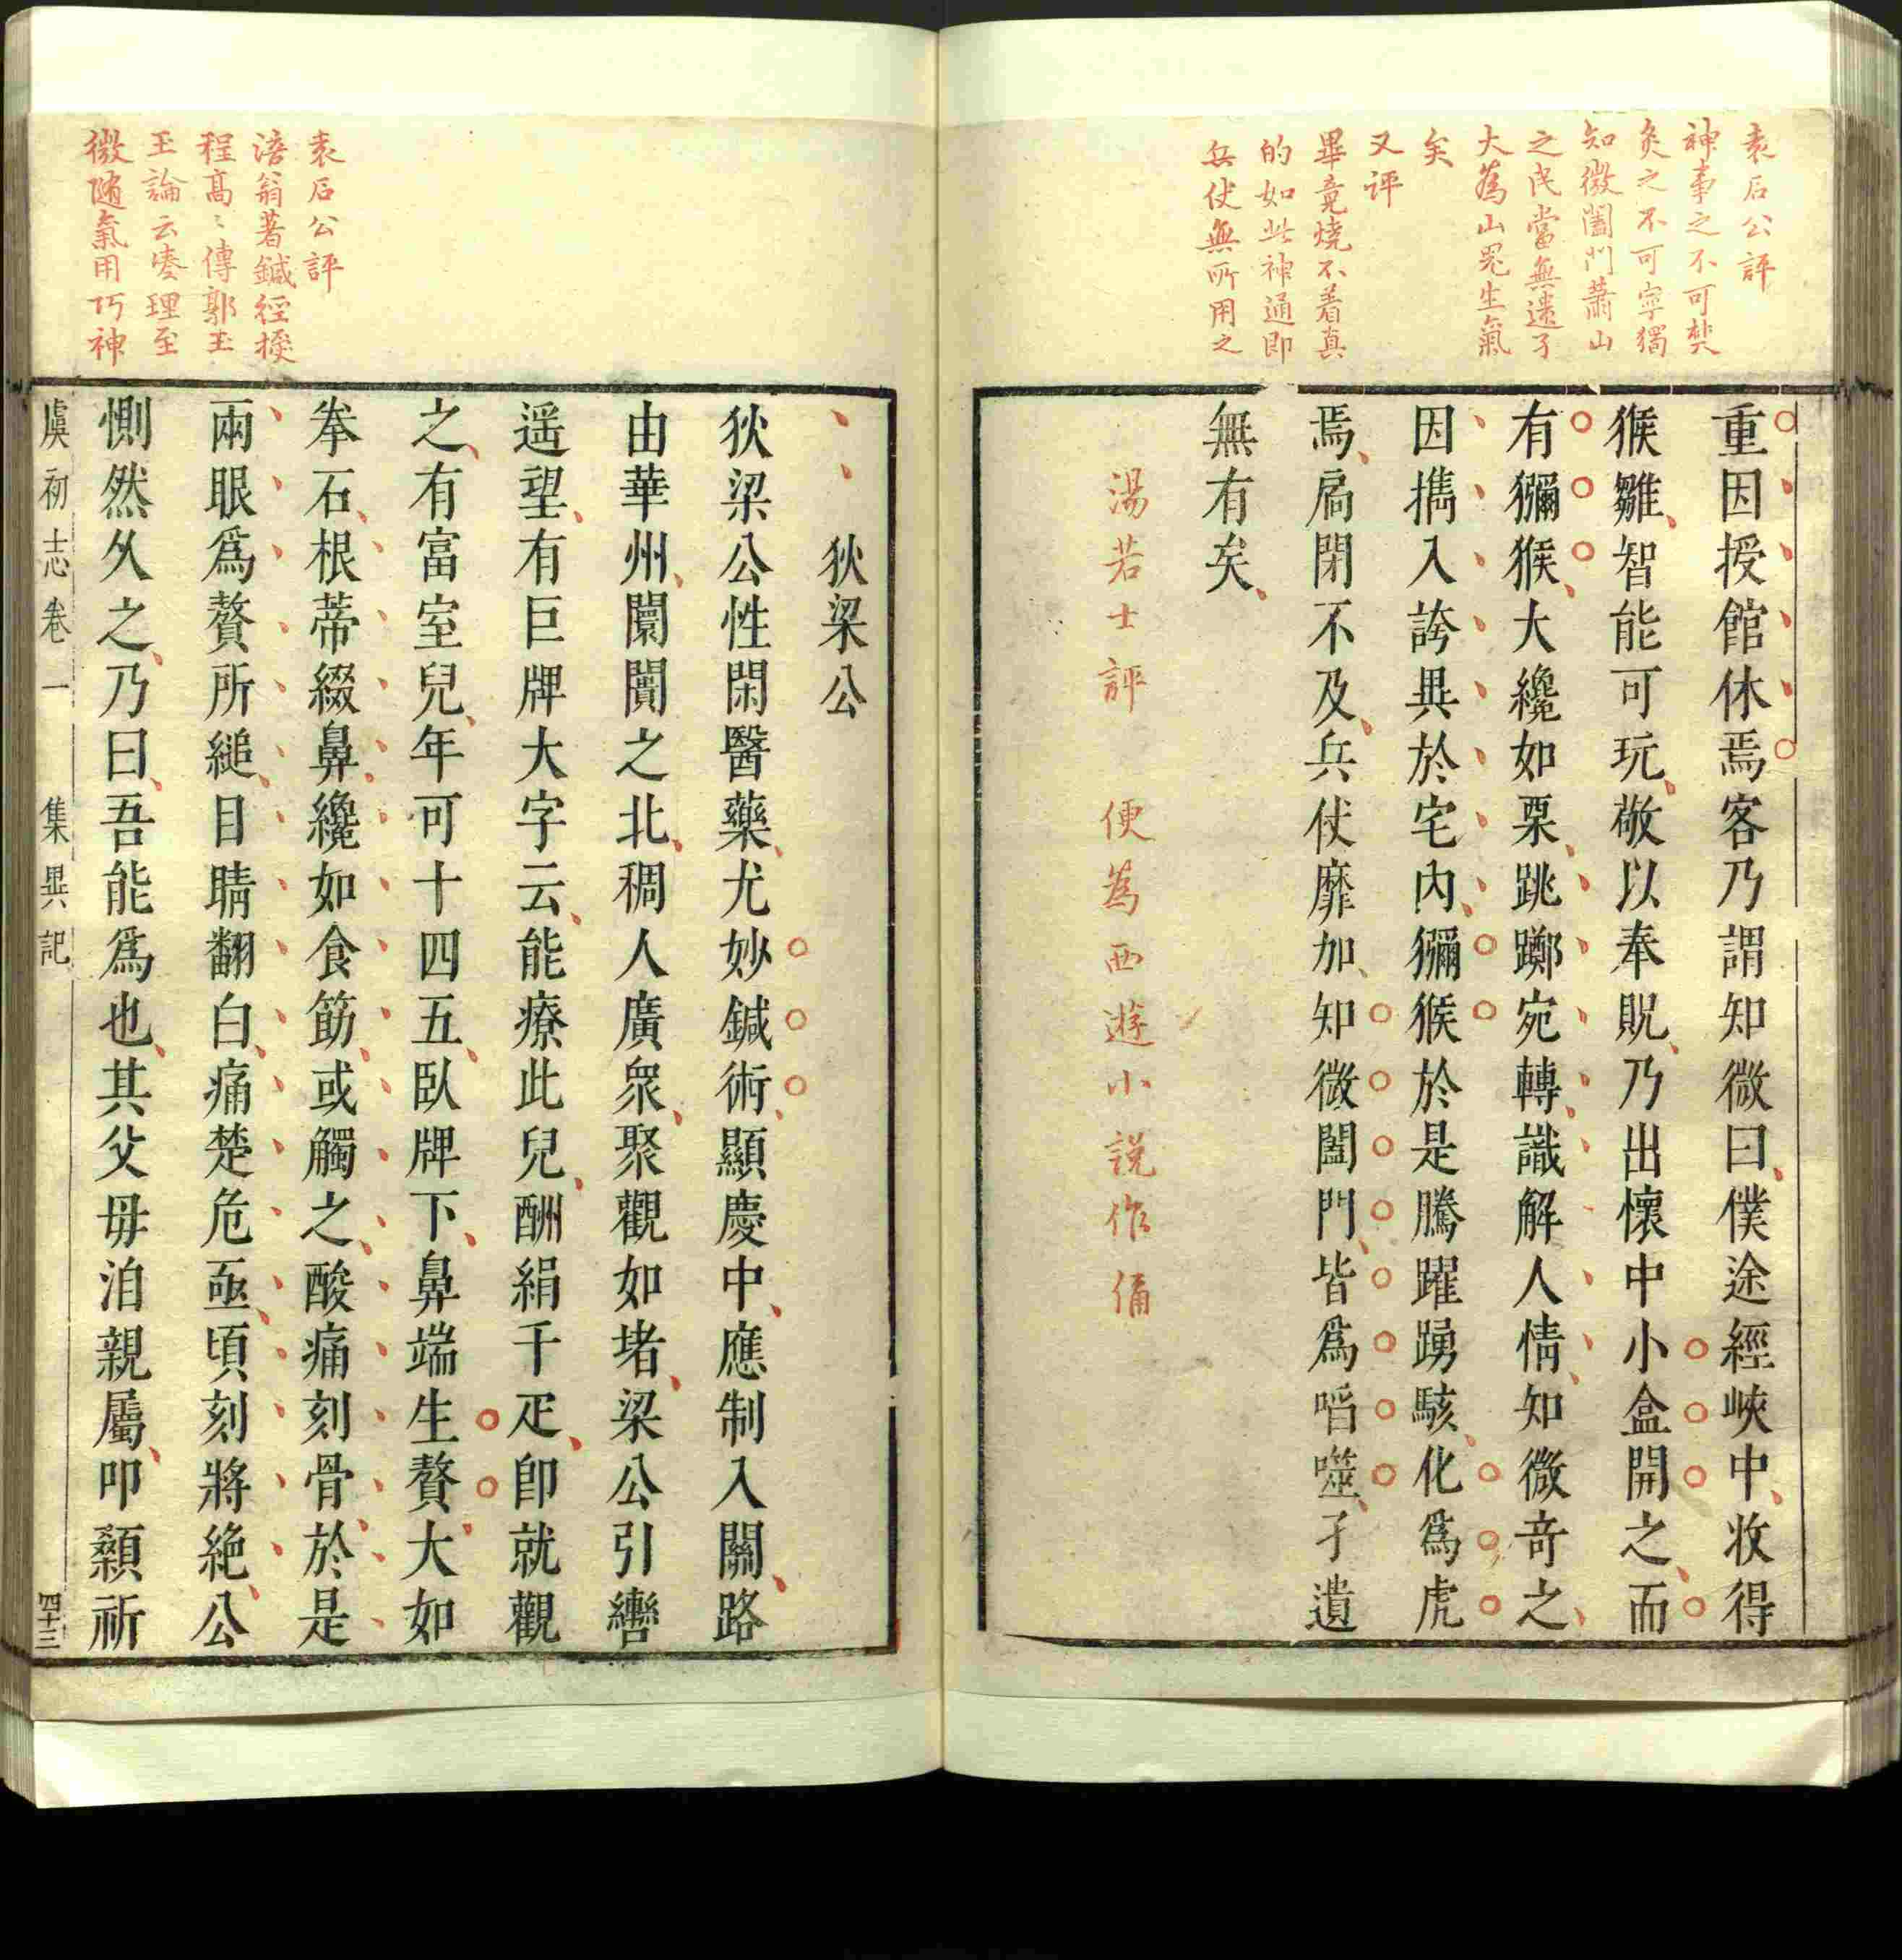 袁石公評
神事之不可焚
炙之不可寧獨
知微闔門蕭山
之民當無遺孑
大為山鬼生氣
矣
又评
畢竟燒不着真
的如此神通即
兵仗無所用之
重因授館休焉客乃謂知微曰僕途經峽中收得
猴雛智能可玩敬以奉貺乃出懷中小盒開之而
有獼猴大纔如栗跳躑宛轉識解人情知微奇之
因擕入誇異於宅內獼猴於是騰躍踴駭化爲虎
焉扃閉不及兵仗靡加知微闔門皆爲啗噬孑遺
無有矣
湯若士評　便為西遊小說作俑
袁石公評
涪翁著鍼經授
程高〻傳郭玉
玉論云腠理至
微隨氣用巧神
狄梁公
狄梁公性閑醫藥尤妙鍼術顯慶中應制入關路
由華州闤闠之北稠人廣衆聚觀如堵梁公引轡
遥望有巨牌大字云能療此兒酬絹千疋卽就觀
之有富室兒年可十四五臥牌下鼻端生贅大如
拳石根蒂綴鼻纔如食筯或觸之酸痛刻骨於是
兩眼爲贅所縋目睛翻白痛楚危亟頃刻將絶公
惻然久之乃曰吾能爲也其父母洎親屬叩顙祈
虞初志卷一　集異記　四十三